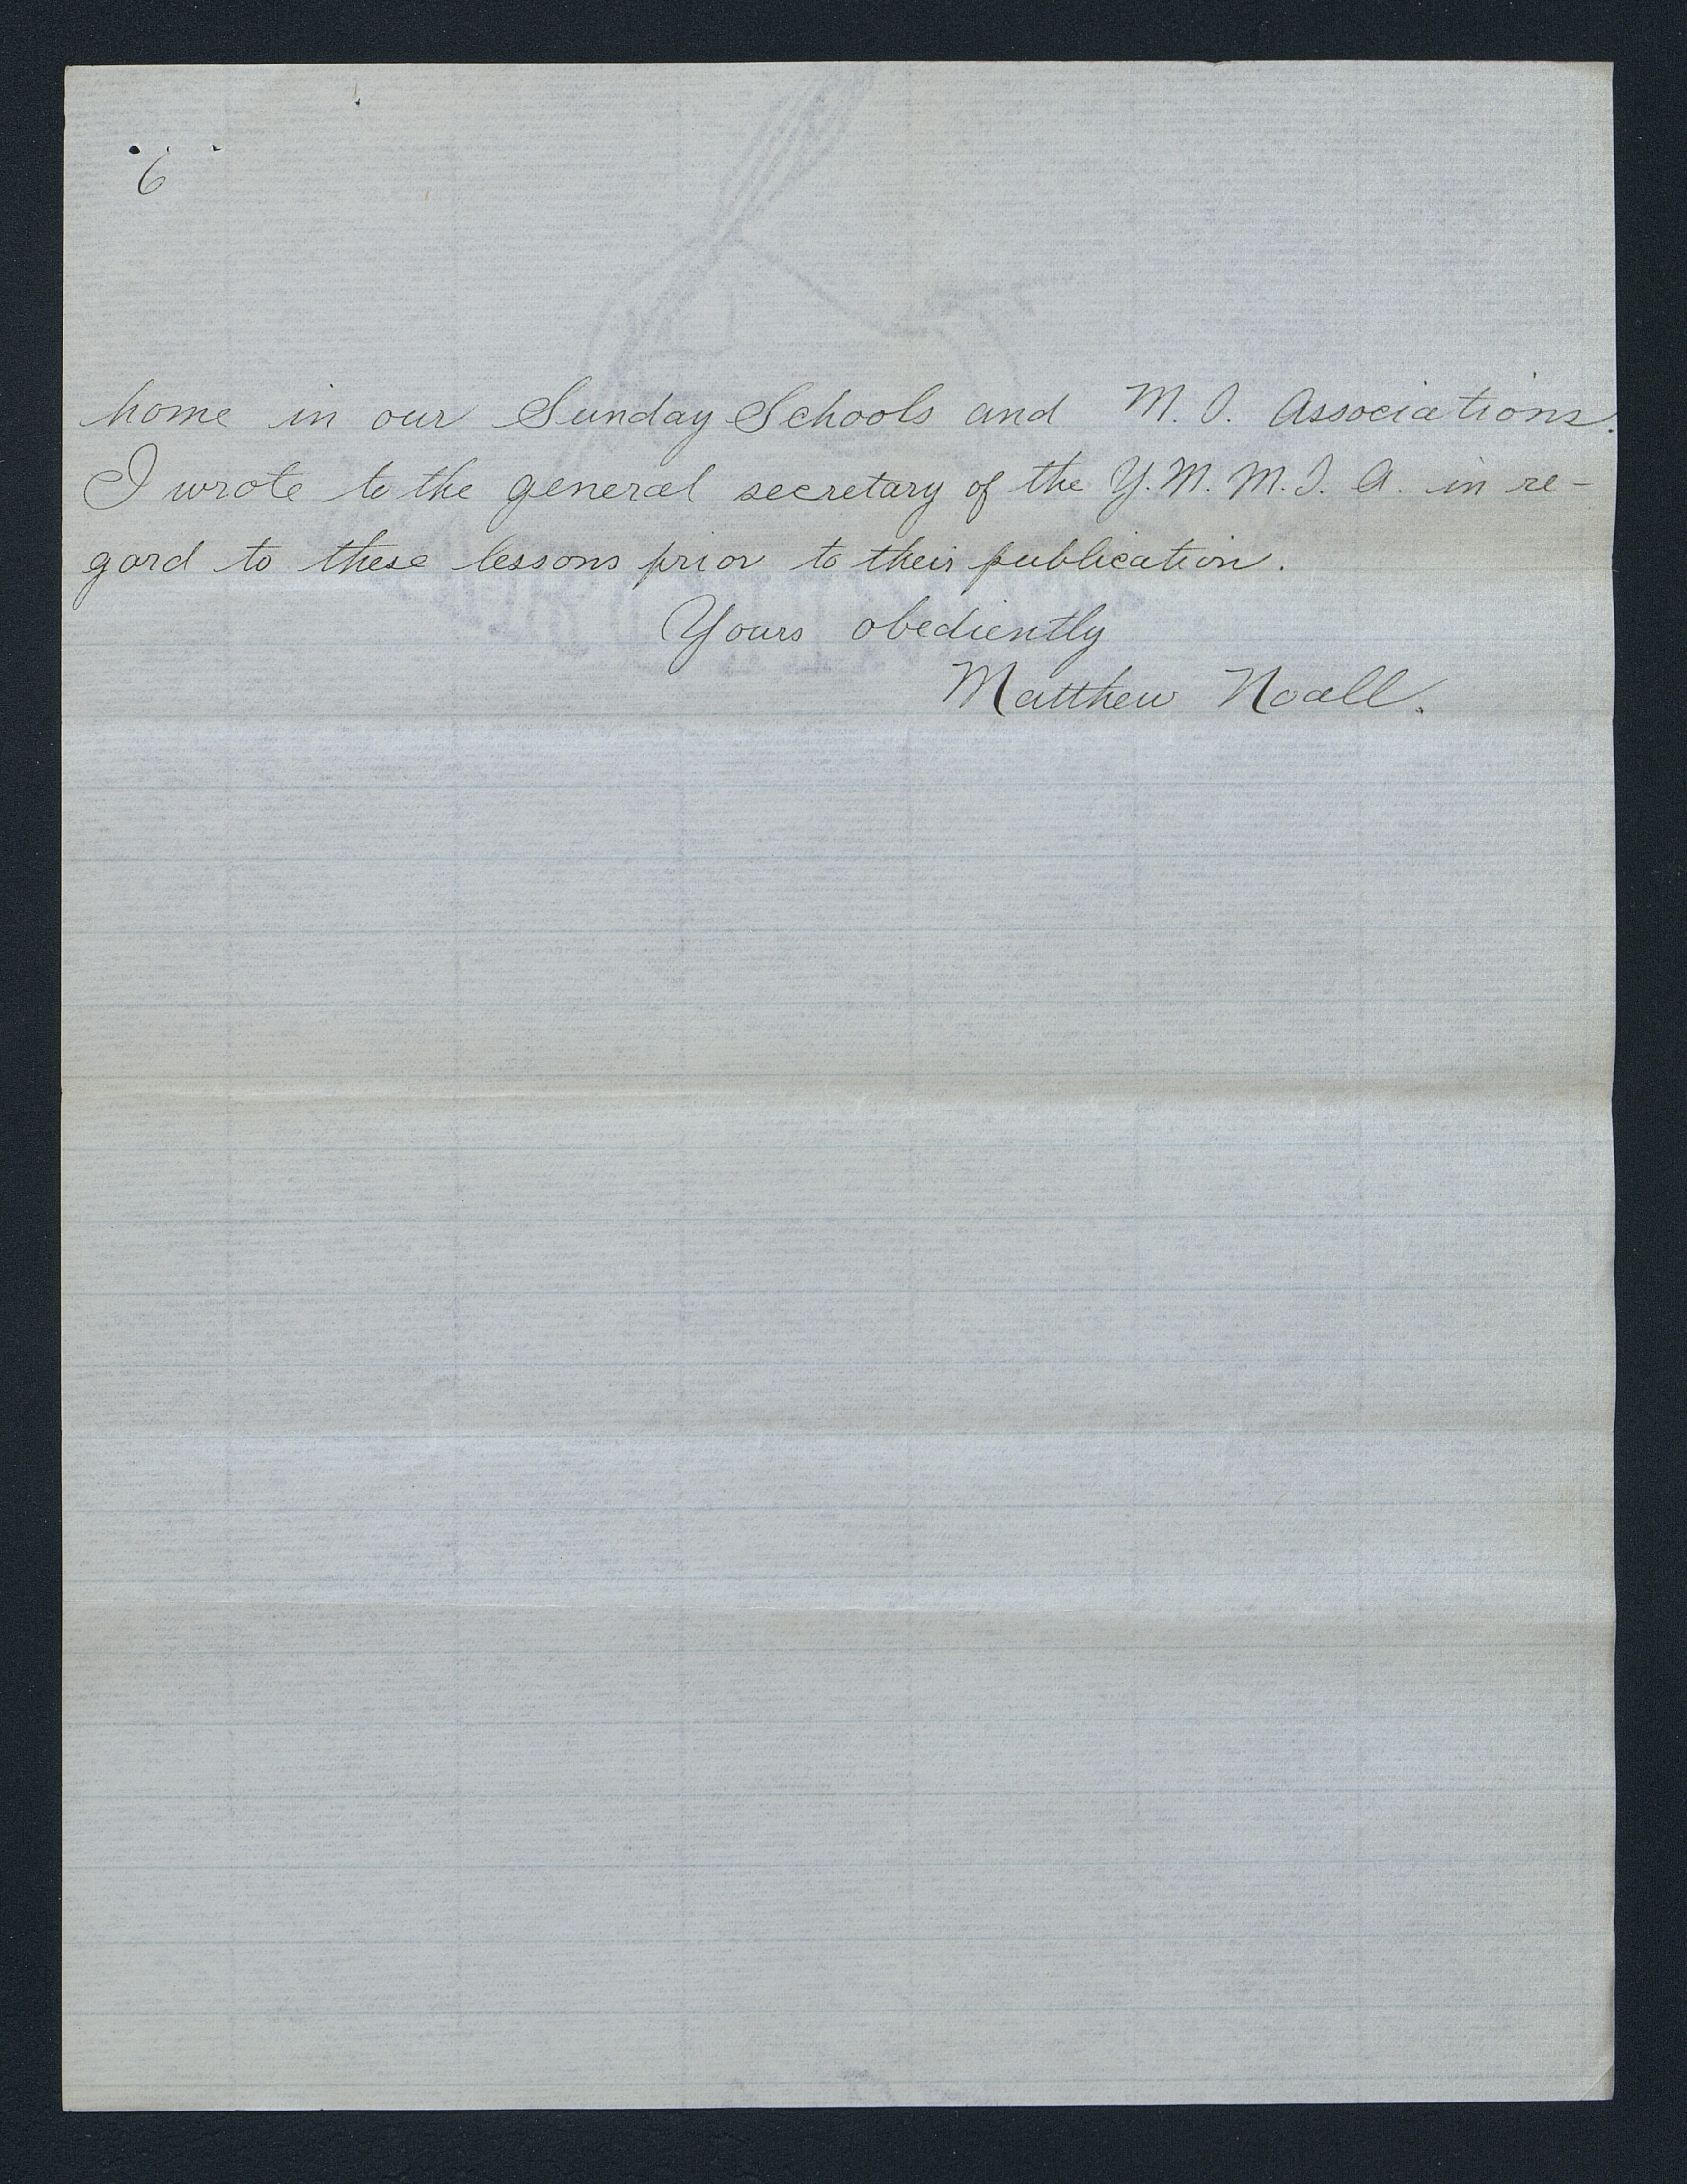 6
home in our Sunday Schools and M. I. Associations.
I wrote to the general secretary of the Y. M. M. I. A. in re-
gard to these lessons prior to their publication.
Yours obediently
Matthew Noall.